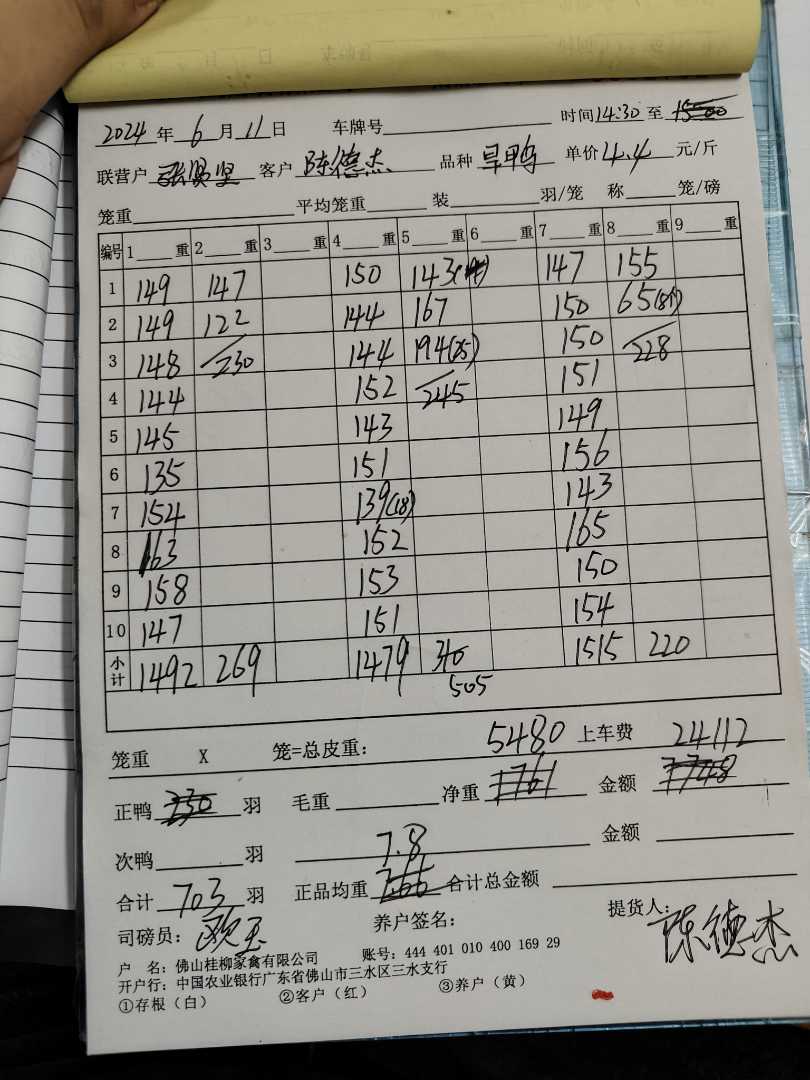 2024 年 6 月 11 日 车牌号 时间 14:30 至 1500
联营户 张贤坚 客户 陈德杰 品种 旱鸭 单价 4.4 元/斤
笼重 平均笼重 装 羽/笼 称 笼/磅
编号 1 重 2 重 3 重 4 重 5 重 6 重 7 重 8 重 9 重
1 149 147 150 143 147 155
2 149 122 144 167 150 65
3 148 230 144 194(25) 150 228
4 144 152 245 151
5 145 143 149
6 135 151 156
7 154 139(18) 143
8 163 152 165
9 158 153 150
10 147 151 154
小计 1492 269 1479 505 1515 220
笼重 X 笼=总皮重: 5480 上车费 24112
正鸭 730 羽 毛重 净重 1761 金额 7748
次鸭 羽 7.8 金额
合计 703 羽 正品均重 7.66 合计总金额
司磅员: 养户签名: 提货人: 陈德杰
户 名: 佛山桂柳家禽有限公司 账号: 444 401 010 400 169 29
开户行: 中国农业银行广东省佛山市三水区三水支行
①存根（白） ②客户（红） ③养户（黄）